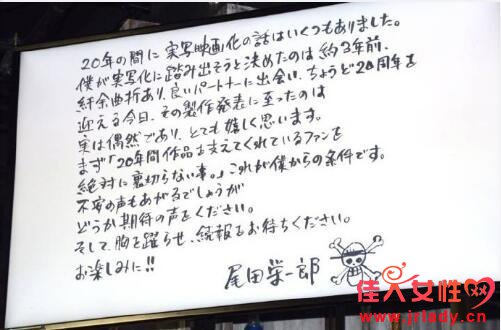 20年の間に実写映画化の話はいくつもありました。
僕が実写化に踏み出そうと決めたのは約3年前、
紆余曲折あり、良いパートナーに出会い、ちょうど20周年を
迎える今日、その製作発表に至ったのは
実は偶然であり、とても嬉しく思います。
まず「20年間作品を支えてくれているファンを
絶対に裏切らない事。」これが僕からの条件です。
不安の声もあがるでしょうが
どうか期待の声をください。
そして、胸を躍らせ、続報をお待ちください。
お楽しみに!!
尾田栄一郎
佳人女性网
www.jrlady.cn